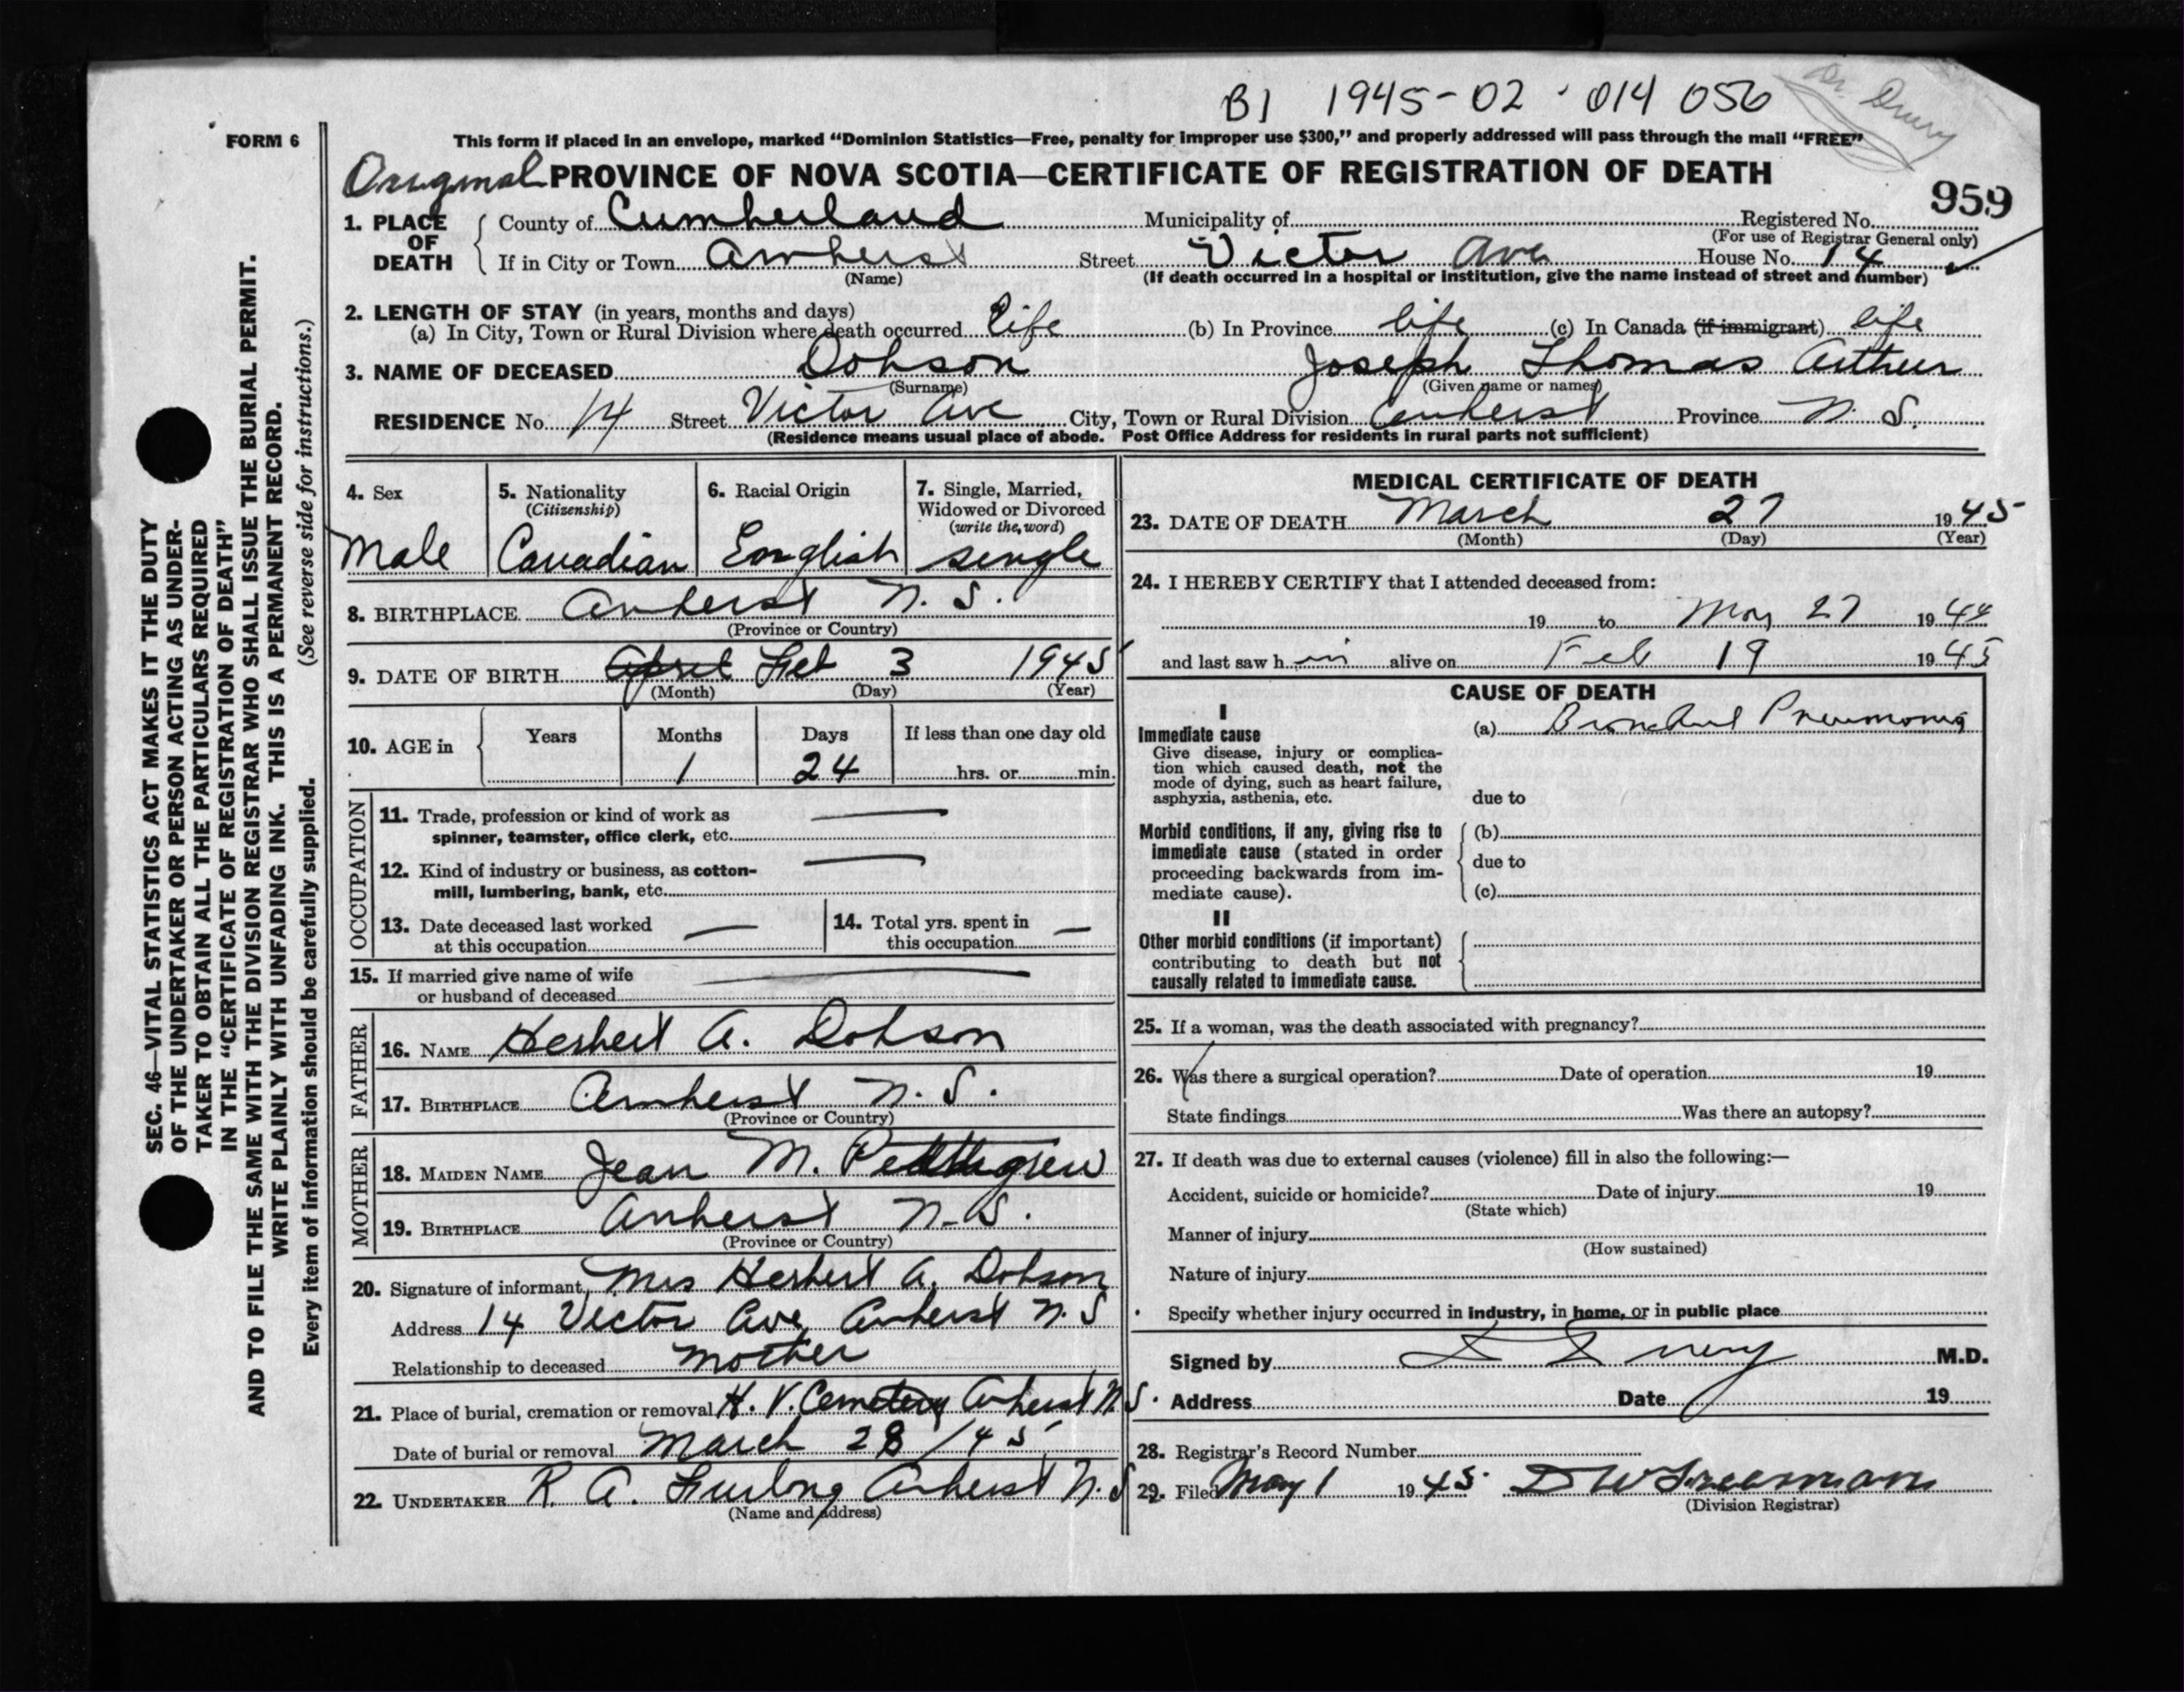 B1 1945-02-014 056
Dr. Drury
FORM 6
This form if placed in an envelope, marked "Dominion Statistics—Free, penalty for improper use $300," and properly addressed will pass through the mail "FREE"
Original PROVINCE OF NOVA SCOTIA—CERTIFICATE OF REGISTRATION OF DEATH
959
1. PLACE OF DEATH County of Cumberland Municipality of Registered No.
(For use of Registrar General only)
If in City or Town Amherst Street Victor Ave House No. 14
(Name) (If death occurred in a hospital or institution, give the name instead of street and number)
2. LENGTH OF STAY (in years, months and days)
(a) In City, Town or Rural Division where death occurred life (b) In Province life (c) In Canada (if immigrant) life
3. NAME OF DECEASED Dobson Joseph Thomas Arthur
(Surname) (Given name or names)
RESIDENCE No. 14 Street Victor Ave City, Town or Rural Division Amherst Province N. S.
(Residence means usual place of abode. Post Office Address for residents in rural parts not sufficient)
4. Sex Male
5. Nationality (Citizenship) Canadian
6. Racial Origin English
7. Single, Married, Widowed or Divorced (write the word) single
8. BIRTHPLACE Amherst N. S.
(Province or Country)
9. DATE OF BIRTH April Feb 3 1945
(Month) (Day) (Year)
10. AGE in Years Months Days If less than one day old
1 24 hrs. or min.
OCCUPATION
11. Trade, profession or kind of work as —
spinner, teamster, office clerk, etc.
12. Kind of industry or business, as cotton- —
mill, lumbering, bank, etc.
13. Date deceased last worked —
at this occupation
14. Total yrs. spent in —
this occupation
15. If married give name of wife —
or husband of deceased
FATHER
16. NAME Herbert A. Dobson
17. BIRTHPLACE Amherst N. S.
(Province or Country)
MOTHER
18. MAIDEN NAME Jean M. Pettigrew
19. BIRTHPLACE Amherst N. S.
(Province or Country)
20. Signature of informant Mrs Herbert A. Dobson
Address 14 Victor Ave, Amherst N. S
Relationship to deceased mother
21. Place of burial, cremation or removal H. V. Cemetery Amherst N S.
Date of burial or removal March 28 / 45
22. UNDERTAKER R. A. Furlong Amherst N. S
(Name and address)
MEDICAL CERTIFICATE OF DEATH
23. DATE OF DEATH March 27 1945
(Month) (Day) (Year)
24. I HEREBY CERTIFY that I attended deceased from:
19 to 27 1944
and last saw h im alive on Feb 19 1945
CAUSE OF DEATH
I
Immediate cause (a) Bronchial Pneumonia
Give disease, injury or complica-
tion which caused death, not the
mode of dying, such as heart failure,
asphyxia, asthenia, etc. due to
Morbid conditions, if any, giving rise to (b)
immediate cause (stated in order due to
proceeding backwards from im-
mediate cause). (c)
II
Other morbid conditions (if important)
contributing to death but not
causally related to immediate cause.
25. If a woman, was the death associated with pregnancy?
26. Was there a surgical operation? Date of operation 19
State findings Was there an autopsy?
27. If death was due to external causes (violence) fill in also the following:—
Accident, suicide or homicide? Date of injury 19
(State which)
Manner of injury
(How sustained)
Nature of injury
Specify whether injury occurred in industry, in home, or in public place
Signed by Drury M.D.
Address Date 19
28. Registrar's Record Number
29. Filed May 1 1945. D W Freeman
(Division Registrar)
SEC. 46—VITAL STATISTICS ACT MAKES IT THE DUTY
OF THE UNDERTAKER OR PERSON ACTING AS UNDER-
TAKER TO OBTAIN ALL THE PARTICULARS REQUIRED
IN THE "CERTIFICATE OF REGISTRATION OF DEATH"
AND TO FILE THE SAME WITH THE DIVISION REGISTRAR WHO SHALL ISSUE THE BURIAL PERMIT.
WRITE PLAINLY WITH UNFADING INK. THIS IS A PERMANENT RECORD.
Every item of information should be carefully supplied. (See reverse side for instructions.)